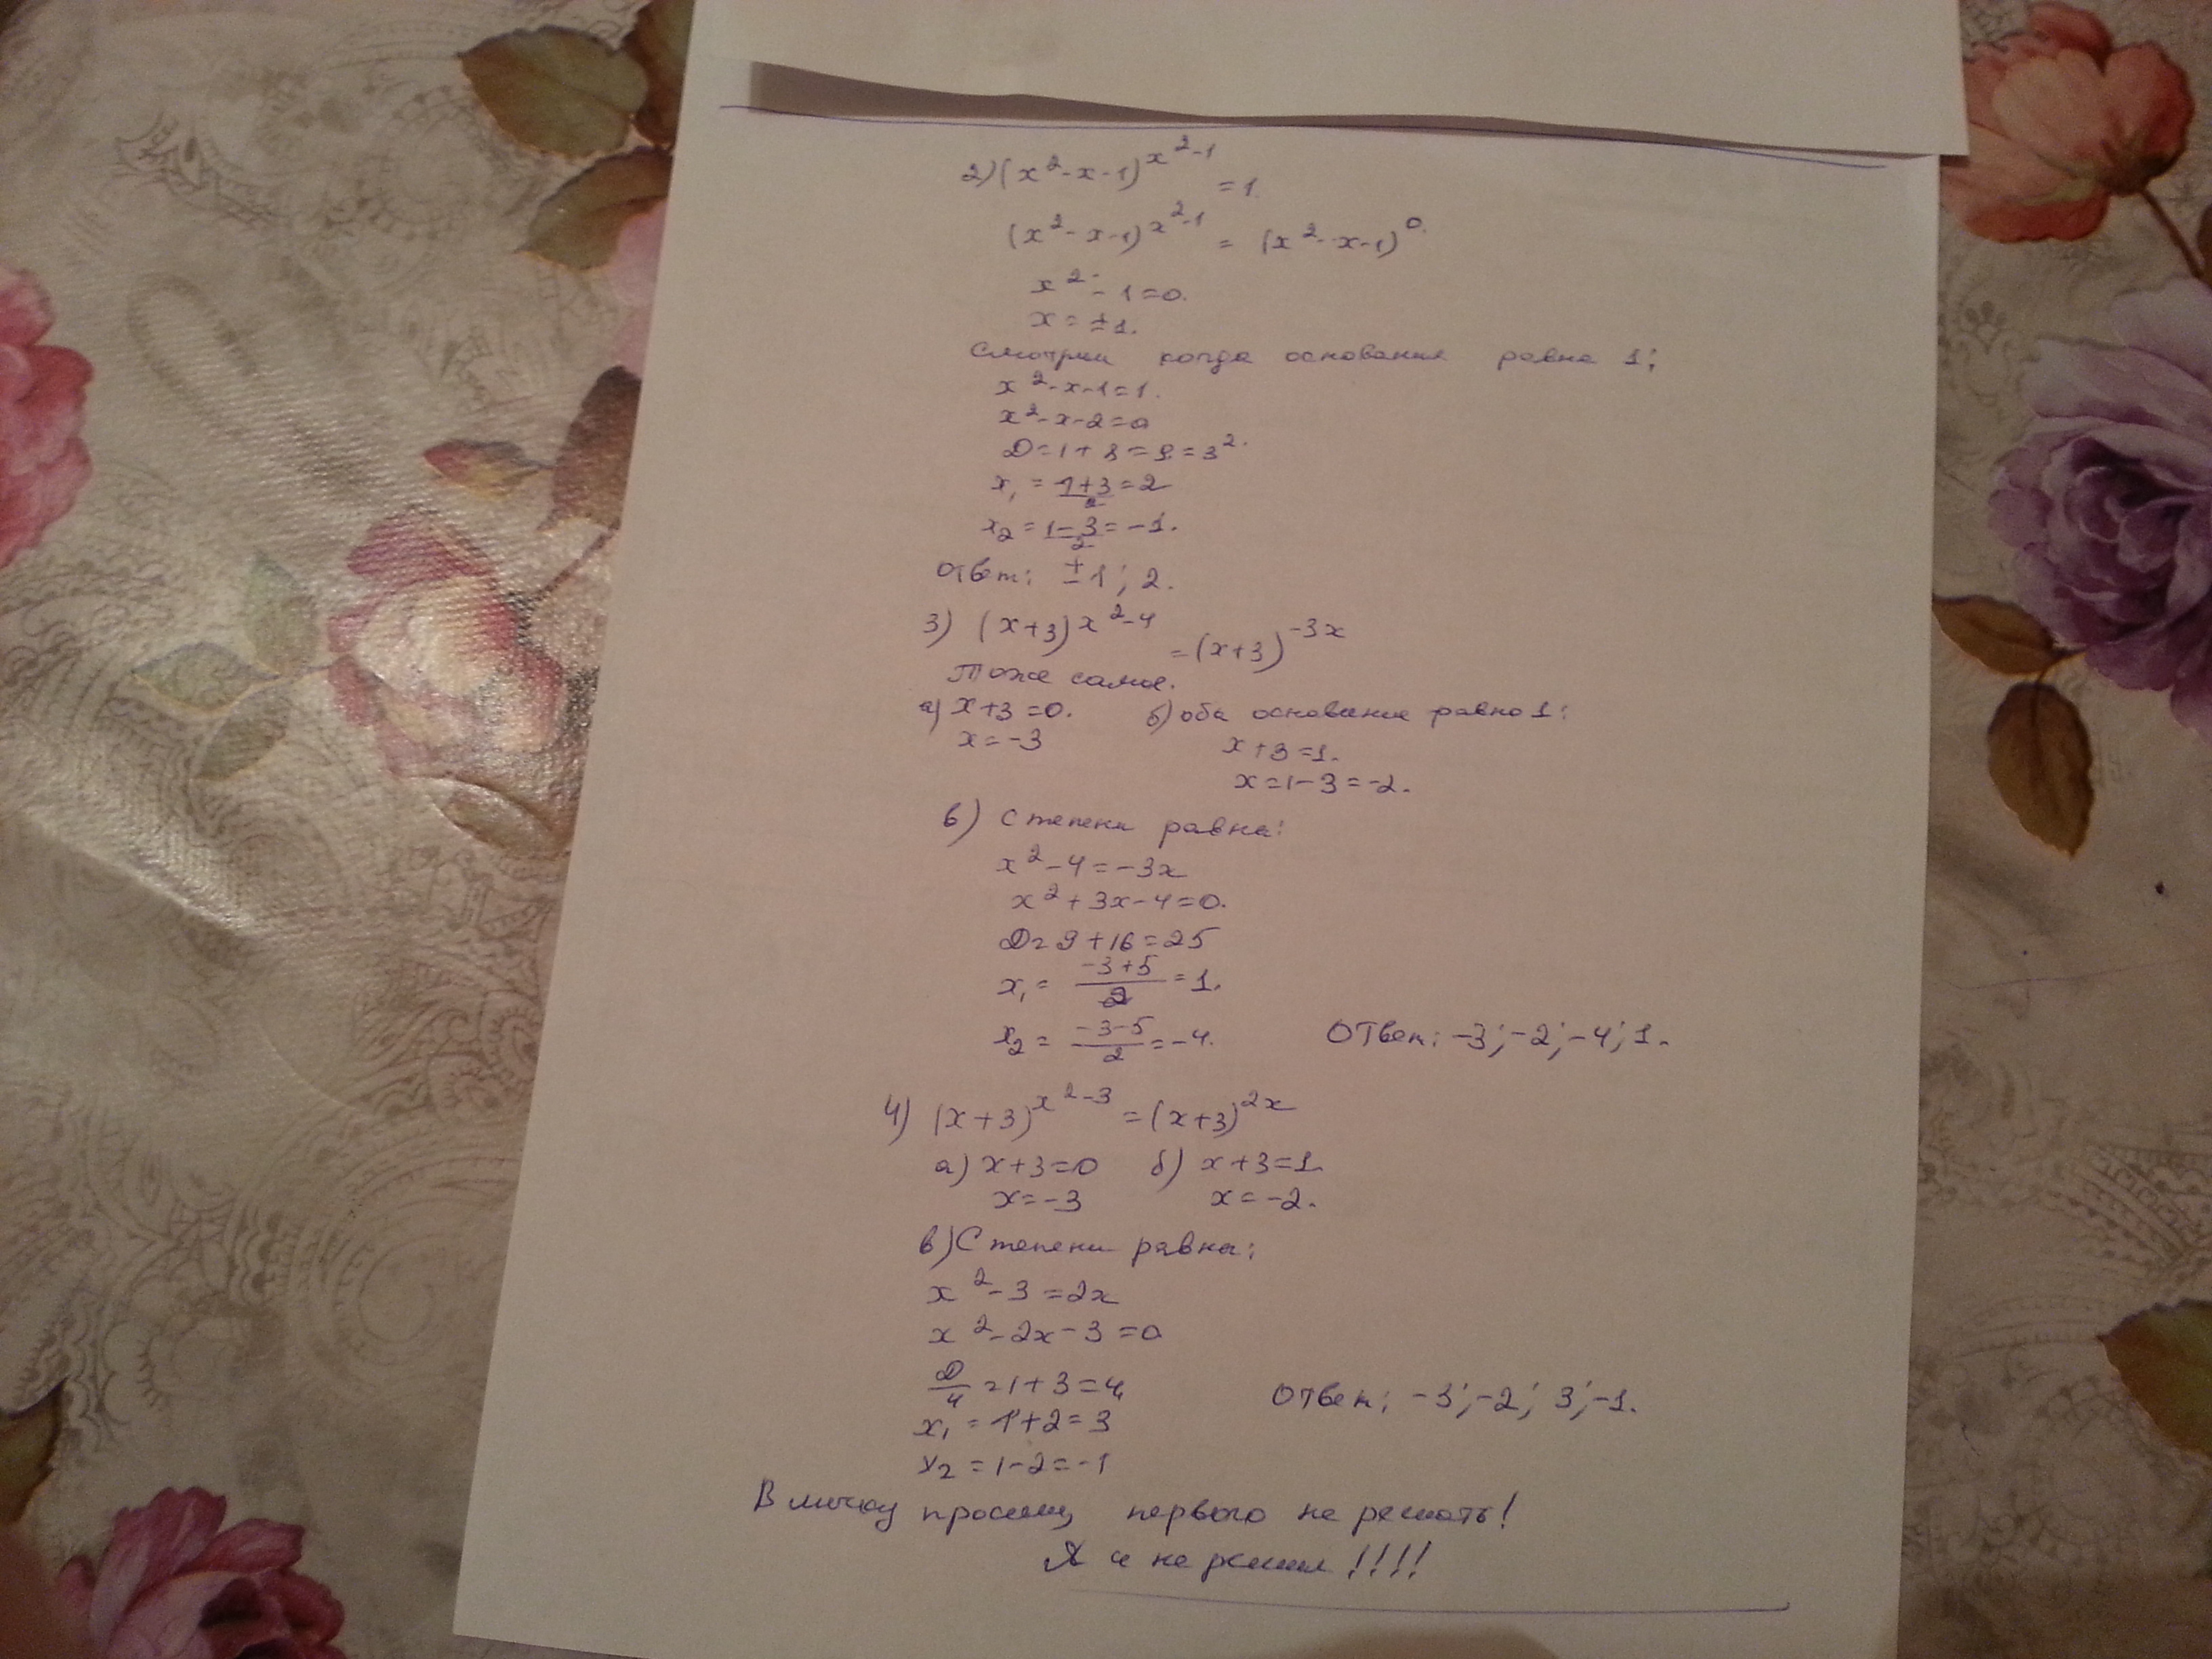 2) (x²-x-1)^(x²-1) = 1.
(x²-x-1)^(x²-1) = (x²-x-1)^0.
x²-1=0.
x=±1.
Смотрим когда основание равно 1:
x²-x-1=1.
x²-x-2=0
D=1+8=9=3².
x₁ = (1+3)/2 = 2
x₂ = (1-3)/2 = -1.
Ответ: ±1; 2.
3) (x+3)^(x²-4) = (x+3)^(-3x)
Тоже самое.
а) x+3=0. б) оба основание равно 1:
x=-3 x+3=1.
x=1-3=-2.
в) Степени равна:
x²-4=-3x
x²+3x-4=0.
D=9+16=25
x₁ = (-3+5)/2 = 1.
x₂ = (-3-5)/2 = -4. Ответ: -3; -2; -4; 1.
4) (x+3)^(x²-3) = (x+3)^(2x)
а) x+3=0 б) x+3=1.
x=-3 x=-2.
в) Степени равна:
x²-3=2x
x²-2x-3=0
D/4=1+3=4
x₁=1+2=3 Ответ: -3; -2; 3; -1.
x₂=1-2=-1
В личку просили первого не решать!
Я и не решил!!!!